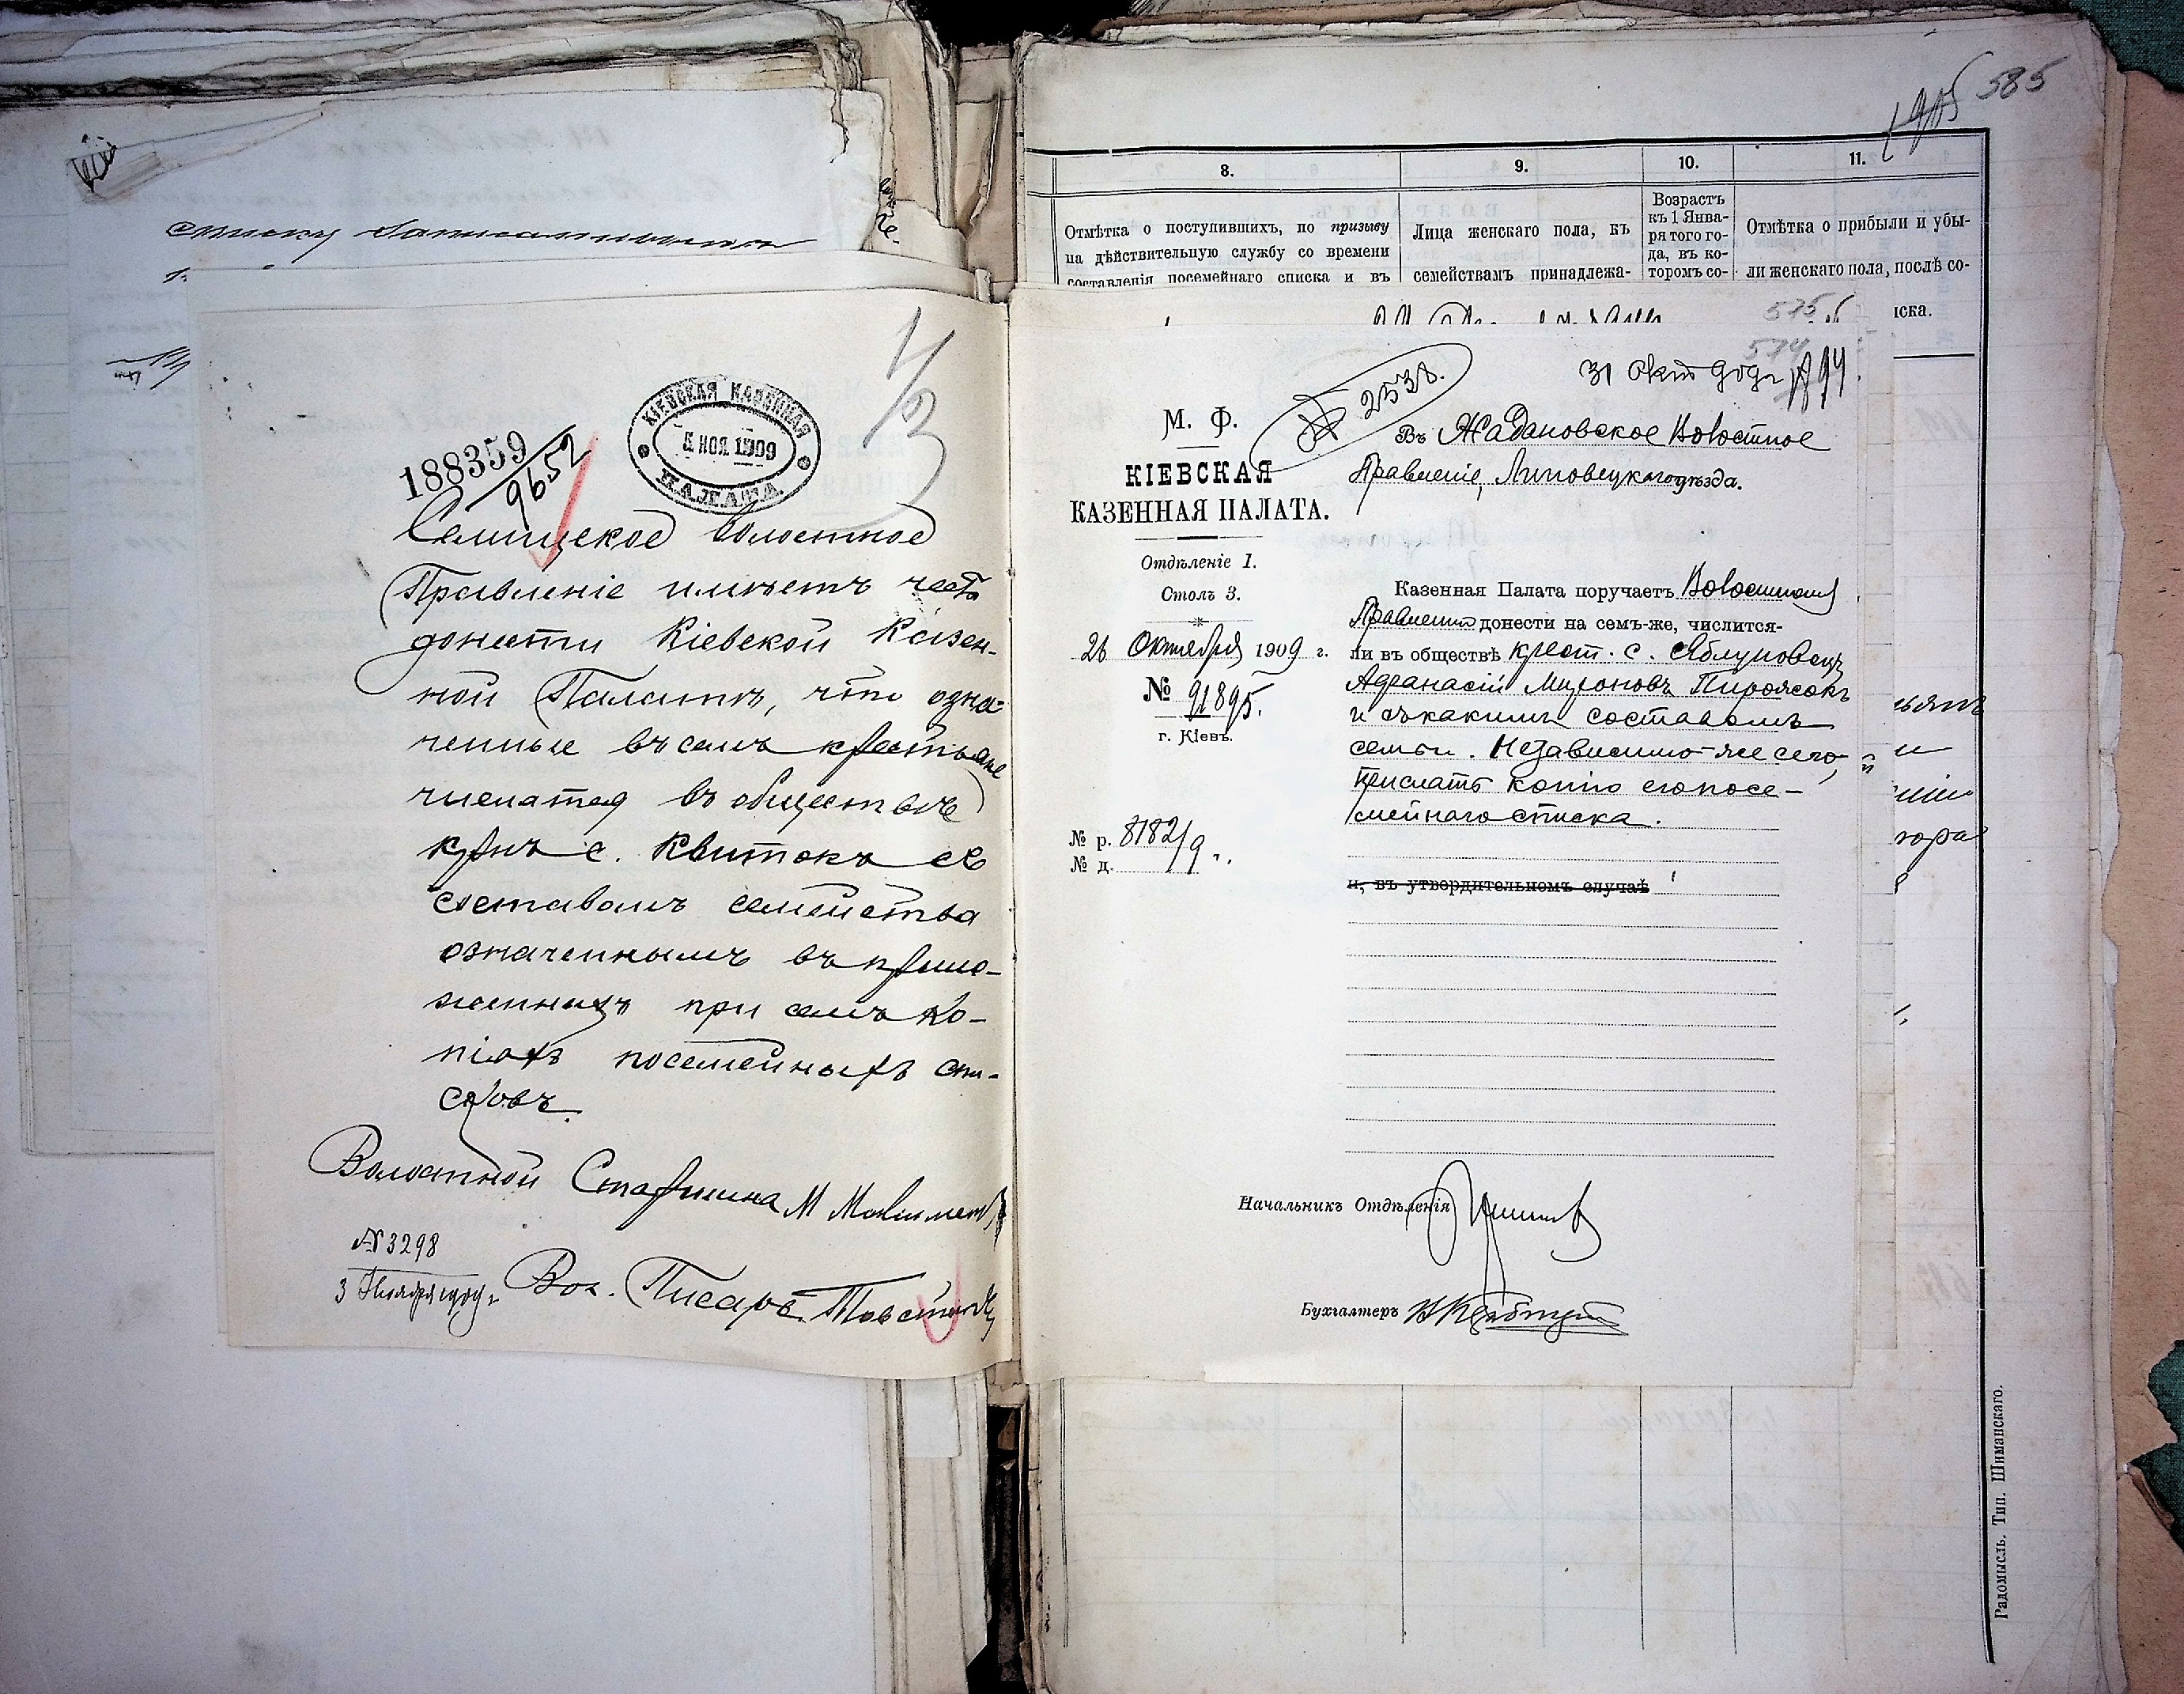 списку
188359
9652
КІЕВСКАЯ КАЗЕННАЯ
5 НОЯ 1909
ПАЛАТА
Селищское волостное
Правленіе имѣетъ честь
донести Кіевской Казен-
ной Палатѣ, что озна-
ченные въ семъ крестьяне
числятся въ обществѣ
крнъ с. Квитокъ съ
составомъ семейства
означеннымъ въ прило-
женныхъ при семъ ко-
піяхъ посемейныхъ спи-
сковъ.
Волостной Старшина М
№ 3298
3 Ноября 1909 г.
Вол. Писарь
585
8.
9.
10.
11.
Отмѣтка о поступившихъ, по призыву
на дѣйствительную службу со времени
составленія посемейнаго списка и въ
Лица женскаго пола, къ
семействамъ принадлежа-
Возрастъ
къ 1 Янва-
ря того го-
да, въ ко-
торомъ со-
Отмѣтка о прибыли и убы-
ли женскаго пола, послѣ со-
иска.
575
574
31 окт 909 г
№ 2538.
М. Ф.
КІЕВСКАЯ
КАЗЕННАЯ ПАЛАТА.
Отдѣленіе 1.
Столъ 3.
26 Октября 1909 г.
№ 91895.
г. Кіевъ.
№ р. 8182/9
№ д.
Въ Жадановское Волостное
Правленіе, Липовецкаго уѣзда.
Казенная Палата поручаетъ Волостному
Правленію донести на семъ-же, числится-
ли въ обществѣ крест. с. Яблуновецъ
Афанасій Мироновъ Пироясокъ
и съ какимъ составомъ
семьи. Независимо-же сего,
прислать копію его посе-
мейнаго списка.
и, въ утвердительномъ случаѣ
Начальникъ Отдѣленія
Бухгалтеръ
Радомысль. Тип. Шиманскаго.